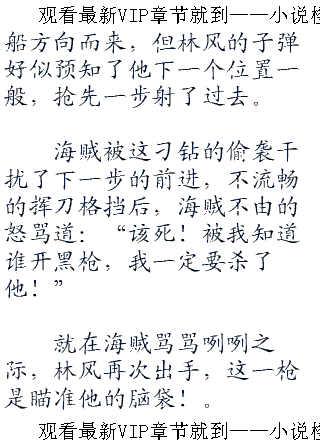 观看最新VIP章节就到——小说检
船方向而来，但林风的子弹
好似预知了他下一个位置一
般，抢先一步射了过去。
海贼被这刁钻的偷袭干
扰了下一步的前进，不流畅
的挥刀格挡后，海贼不由的
怒骂道：“该死！被我知道
谁开黑枪，我一定要杀了
他！”
就在海贼骂骂咧咧之
际，林风再次出手，这一枪
是瞄准他的脑袋！。
观看最新VIP章节就到——小说检